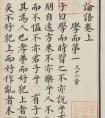 論語卷上
學而第一
子曰學而時習之不亦說乎
朋自遠方來不亦樂乎
而不慍不亦君子乎有子
其為人也孝弟而好犯上
矣不好犯上而好作亂者未